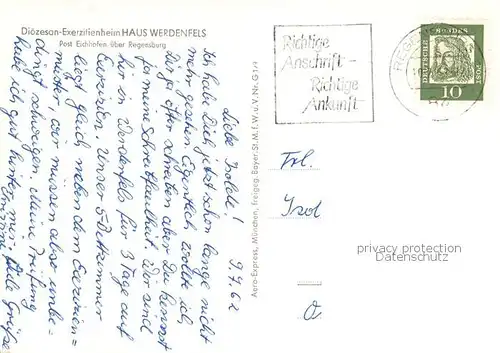 Diözesan-Exerzitienheim HAUS WERDENFELS
Post Eichhofen über Regensburg
9.4.62
Liebe Isolde!
Ich habe Dich jetzt schon lange nicht
mehr gesehen. Eigentlich wollte ich
Dir ja öfter schreiben aber Du kennst
ja meine Schreibfaulheit. Wir sind
hier in Werdenfels für 3 Tage auf
Exerzitien. Unser 5-Bettzimmer
liegt gleich neben dem Exerzitien=
meister, wir müssen also unbe-
dingt schweigen. Meine Prüfung
habe ich gut hinter mir. Viele Grüße
Aero-Express, München, Freigeg. Bayer. St. M. f. W. u. V. Nr. G
Richtige
Anschrift -
Richtige
Ankunft
DEUTSCHE
BUNDES
POST
10
Frl.
Isol
privacy protection
Datenschutz